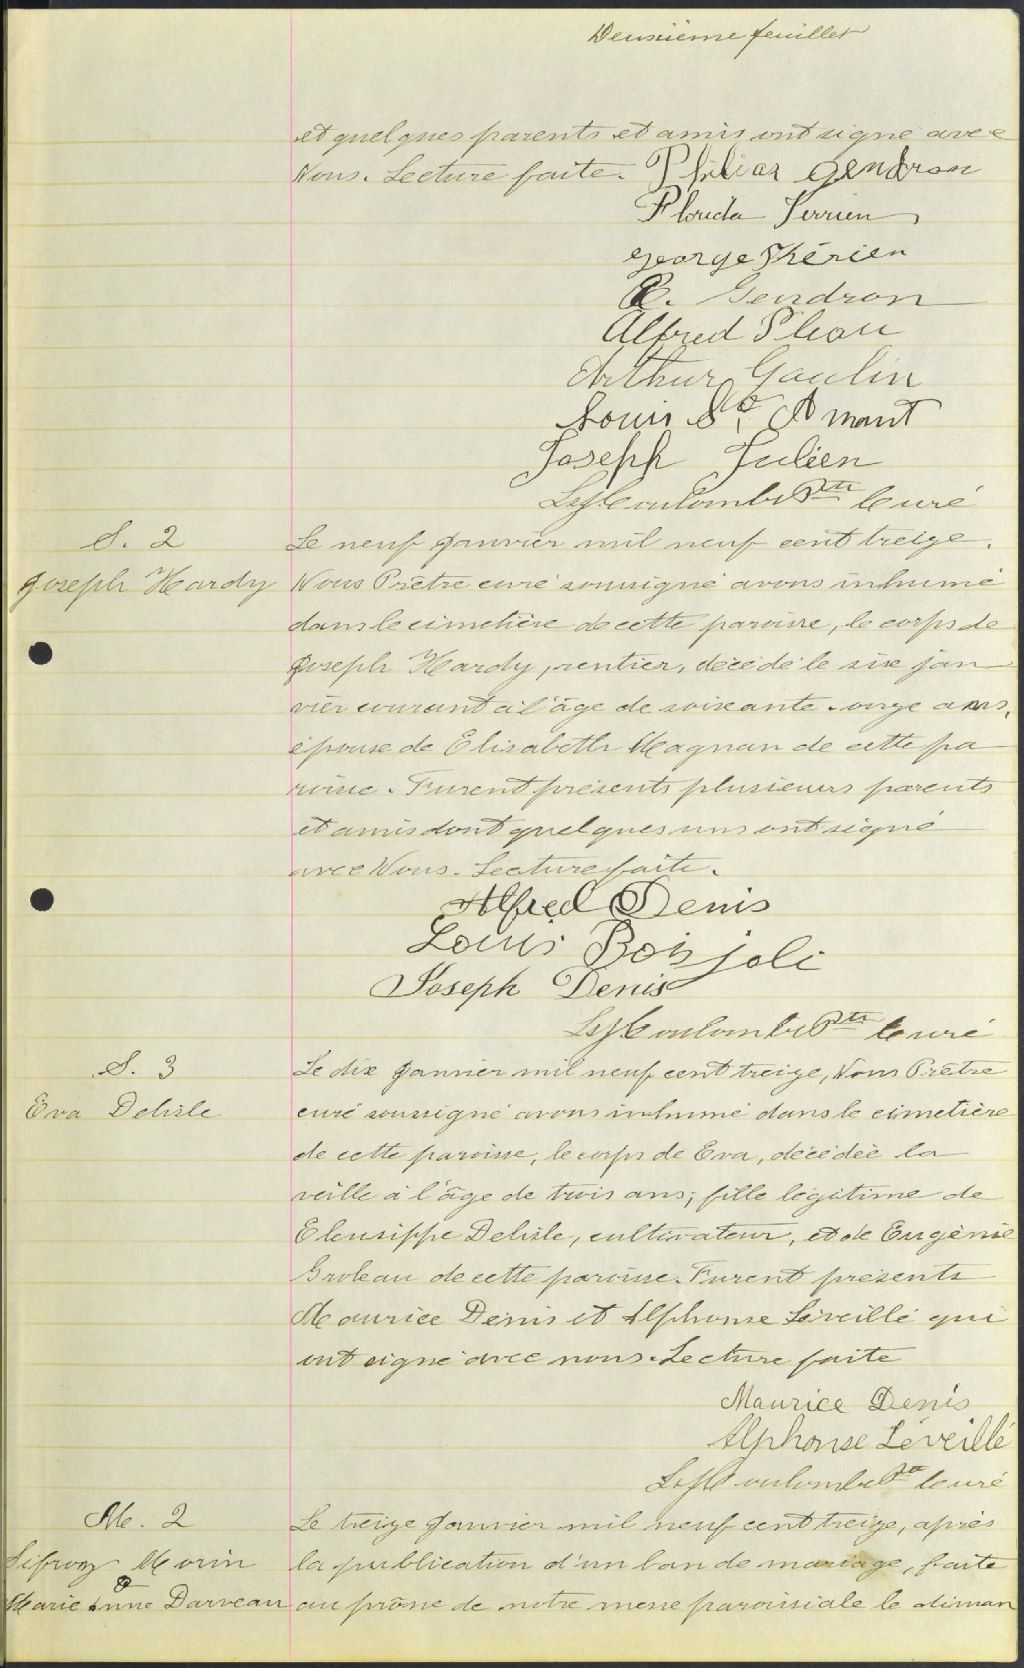 Deuxième feuillet
et quelques parents et amis ont signé avec
Nous. Lecture faite. Philias Gendron
Florida Terrien
George Thérien
Gendron
Alfred Pleau
Arthur Gaulin
Louis St. Amant
Joseph Julien
Ptre Curé
S. 2
Joseph Hardy
Le neuf Janvier mil neuf cent treize.
Nous Prêtre curé soussigné avons inhumé
dans le cimetière de cette paroisse, le corps de
Joseph Hardy, rentier, décédé le six jan
vier courant à l'âge de soixante-onze ans,
époux de Elisabeth Magnan de cette pa
roisse. Furent présents plusieurs parents
et amis dont quelques uns ont signé
avec Nous. Lecture faite.
Alfred Denis
Louis Boisjoli
Joseph Denis
Ptre Curé
S. 3
Eva Delisle
Le dix Janvier mil neuf cent treize, Nous Prêtre
curé soussigné avons inhumé dans le cimetière
de cette paroisse, le corps de Eva, décédée la
veille à l'âge de trois ans, fille légitime de
Eleusippe Delisle, cultivateur, et de Eugénie
Groleau de cette paroisse. Furent présents
Maurice Denis et Alphonse Léveillé qui
ont signé avec nous. Lecture faite
Maurice Denis
Alphonse Léveillé
curé
M. 2
Sifroy Morin
&
Marie Anne Darveau
Le treize Janvier mil neuf cent treize, après
la publication d'un ban de mariage, faite
au prône de notre messe paroissiale le diman